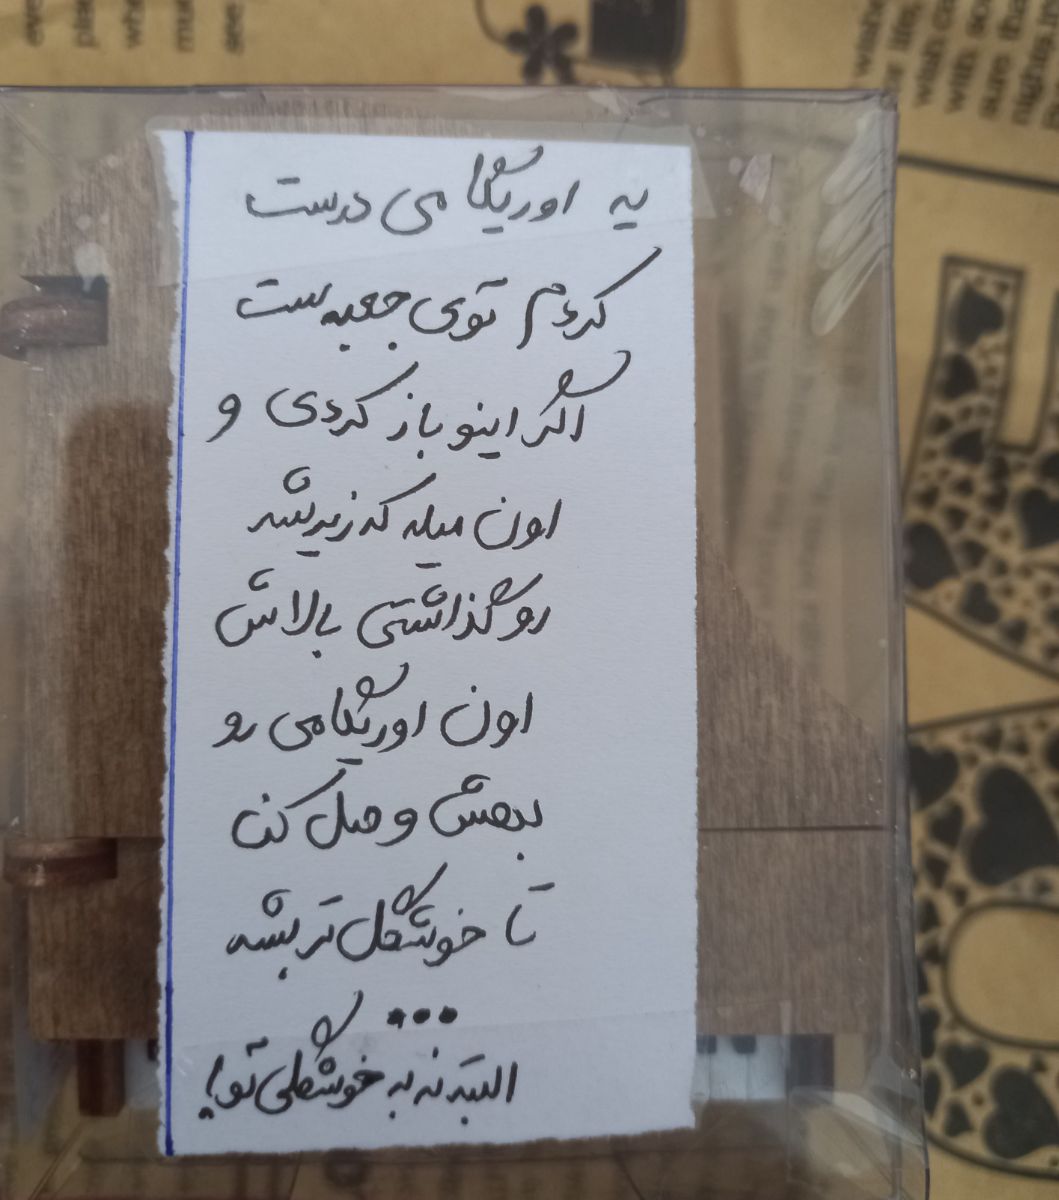 یه اوریگامی درست
کردم توی جعبه‌ست
اگر اینو باز کردی و
اون میله که زیرشه
رو گذاشتی بالاش
اون اوریگامی رو
بهش وصل کن
تا خوشگل تر بشه
...
البته نه به خوشگلی تو!